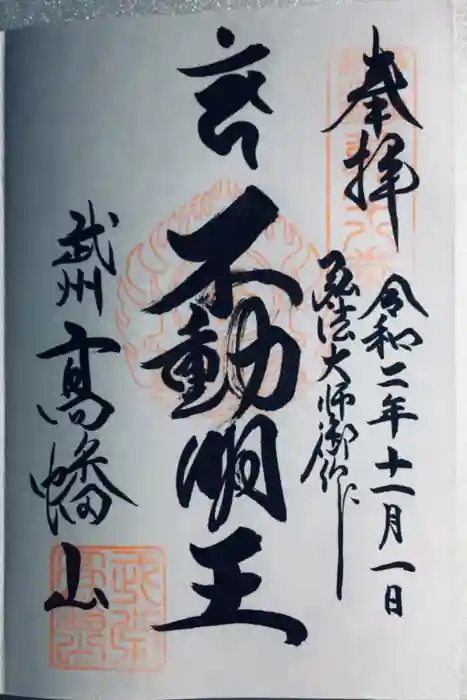 奉拝
令和二年十一月一日
弘法大師御作
不動明王
武州
髙幡山